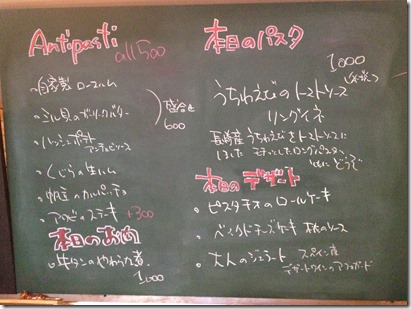 Antipasti
all 500
・自家製 ロースハム
・ムール貝のガーリックバター
アンチョビソース
盛合せ
600
・くじらの生ハム
のカルパッチョ
・アワビのステーキ +300
本日のお肉
・牛タンのやわらか煮
1,000
本日のパスタ
1,000
うちわえびのトマトソース
リングイネ
長崎産 うちわえびをトマトソースに
しました モチっとしたロングパスタと
いっしょに どうぞ
本日のデザート
・ピスタチオのロールケーキ
・ベイクドチーズケーキ 桃のソース
・大人のジェラート スペイン産
デザートワインのアフォガード